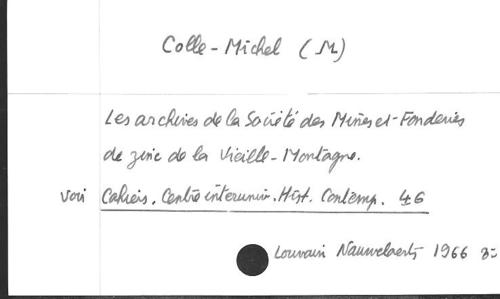 Colle-Michel (M)
Les archives de la Société des Mines et Fonderies
de zinc de la Vieille-Montagne.
voir Cahiers. Centre interuniv. Hist. Contemp. 46
Louvain Nauwelaerts 1966 8°